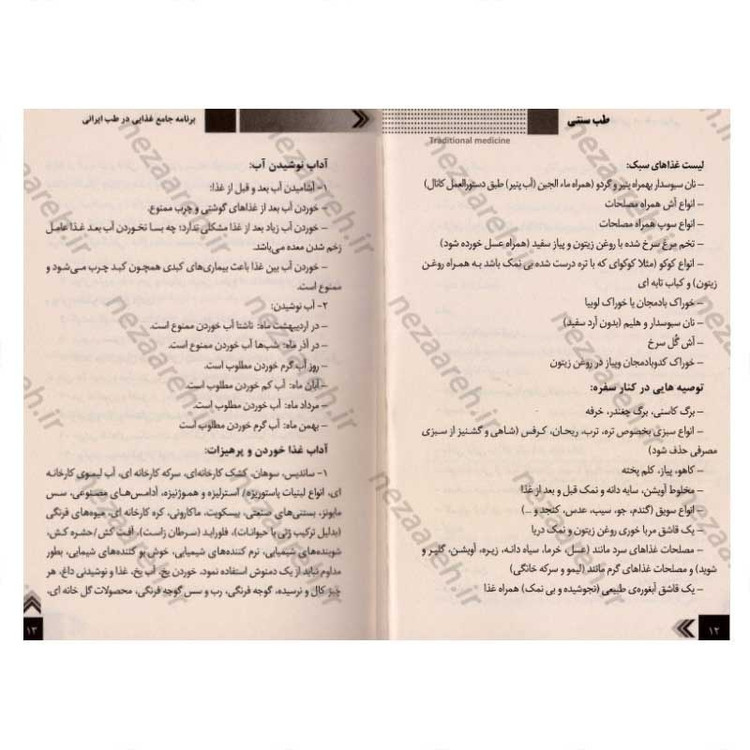 طب سنتی
Traditional medicine
لیست غذاهای سبک:
– نان سبوسدار بهمراه پنیر و گردو (همراه ماء الجبن (آب پنیر) طبق دستورالعمل کانال)
– انواع آش همراه مصلحات
– انواع سوپ همراه مصلحات
– تخم مرغ سرخ شده با روغن زیتون و پیاز سفید (همراه عسل خورده شود)
– انواع کوکو (مثلا کوکوای که با تره درست شده بی نمک باشد به همراه روغن
زیتون) و کباب تابه ای
– خوراک بادمجان یا خوراک لوبیا
– نان سبوسدار و هلیم (بدون آرد سفید)
– آش گُل سرخ
– خوراک کدوبادمجان وپیاز در روغن زیتون
توصیه هایی در کنار سفره:
– برگ کاسنی، برگ چغندر، خرفه
– انواع سبزی بخصوص تره، ترب، ریحان، کرفس (شاهی و گشنیز از سبزی
مصرفی حذف شود)
– کاهو، پیاز، کلم پخته
– مخلوط آویشن، سیاه دانه و نمک قبل و بعد از غذا
– انواع سویق (گندم، جو، سیب، عدس، کنجد و ...)
– یک قاشق مربا خوری روغن زیتون و نمک دریا
– مصلحات غذاهای سرد مانند (عسل، خرما، سیاه دانه، زیره، آویشن، گلپر و
شوید) و مصلحات غذاهای گرم مانند (لیمو و سرکه خانگی)
– یک قاشق آبغوره‌ی طبیعی (نجوشیده و بی نمک) همراه غذا
۱۲
برنامه جامع غذایی در طب ایرانی
آداب نوشیدن آب:
۱- آشامیدن آب بعد و قبل از غذا:
– خوردن آب بعد از غذاهای گوشتی و چرب ممنوع.
– خوردن آب زیاد بعد از غذا مشکلی ندارد؛ چه بسا نخوردن آب بعد غذا عامل
زخم شدن معده می‌باشد.
– خوردن آب بین غذا باعث بیماری‌های کبدی همچون کبد چرب می‌شود و
ممنوع است.
۲- آب نوشیدن:
– در اردیبهشت ماه: ناشتا آب خوردن ممنوع است.
– در آذر ماه: شب‌ها آب خوردن ممنوع است.
– روز آب گرم خوردن مطلوب است.
– آبان ماه: آب کم خوردن مطلوب است.
– مرداد ماه: آب خوردن مطلوب است.
– بهمن ماه: آب گرم خوردن مطلوب است.
آداب غذا خوردن و پرهیزات:
۱- ساندیس، سوهان، کشک کارخانه‌ای، سرکه کارخانه ای، آب لیموی کارخانه
ای، انواع لبنیات پاستوریزه/ استرلیزه و هموژنیزه، آدامس‌های مصنوعی، سس
مایونز، بستنی‌های صنعتی، بیسکویت، ماکارونی، کره کارخانه ای، میوه‌های فرنگی
(بدلیل ترکیب ژنی با حیوانات)، فلوراید (سرطان زاست)، آفت کش/حشره کش،
شوینده‌های شیمیایی، نرم کننده‌های شیمیایی، خوش بو کننده‌های شیمیایی، بطور
مداوم نباید از یک دمنوش استفاده نمود. خوردن یخ، آب یخ، غذا و نوشیدنی داغ، هر
چیز کال و نرسیده، گوجه فرنگی، رب و سس گوجه فرنگی، محصولات گل خانه ای،
۱۳
nezaareh.ir